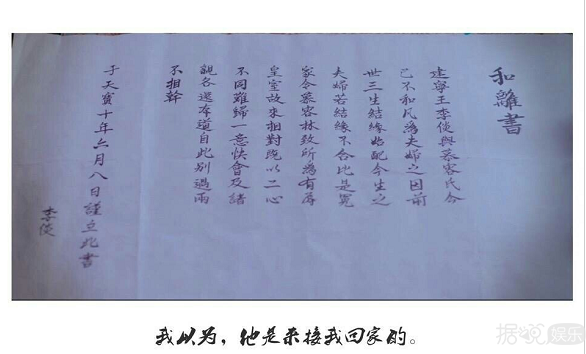 和離書
建寧王李倓與慕容氏今
已不和凡為夫婦之因前
世三生結緣始配今生之
夫婦若結緣不合比是冤
家今慕容林致所為有辱
皇室故來相對既以二心
不同難歸一意快會及諸
親各還本道自此別過兩
不相幹
于天寶十年六月八日謹立此書
李倓
我以为，他是来接我回家的。
据说娱乐